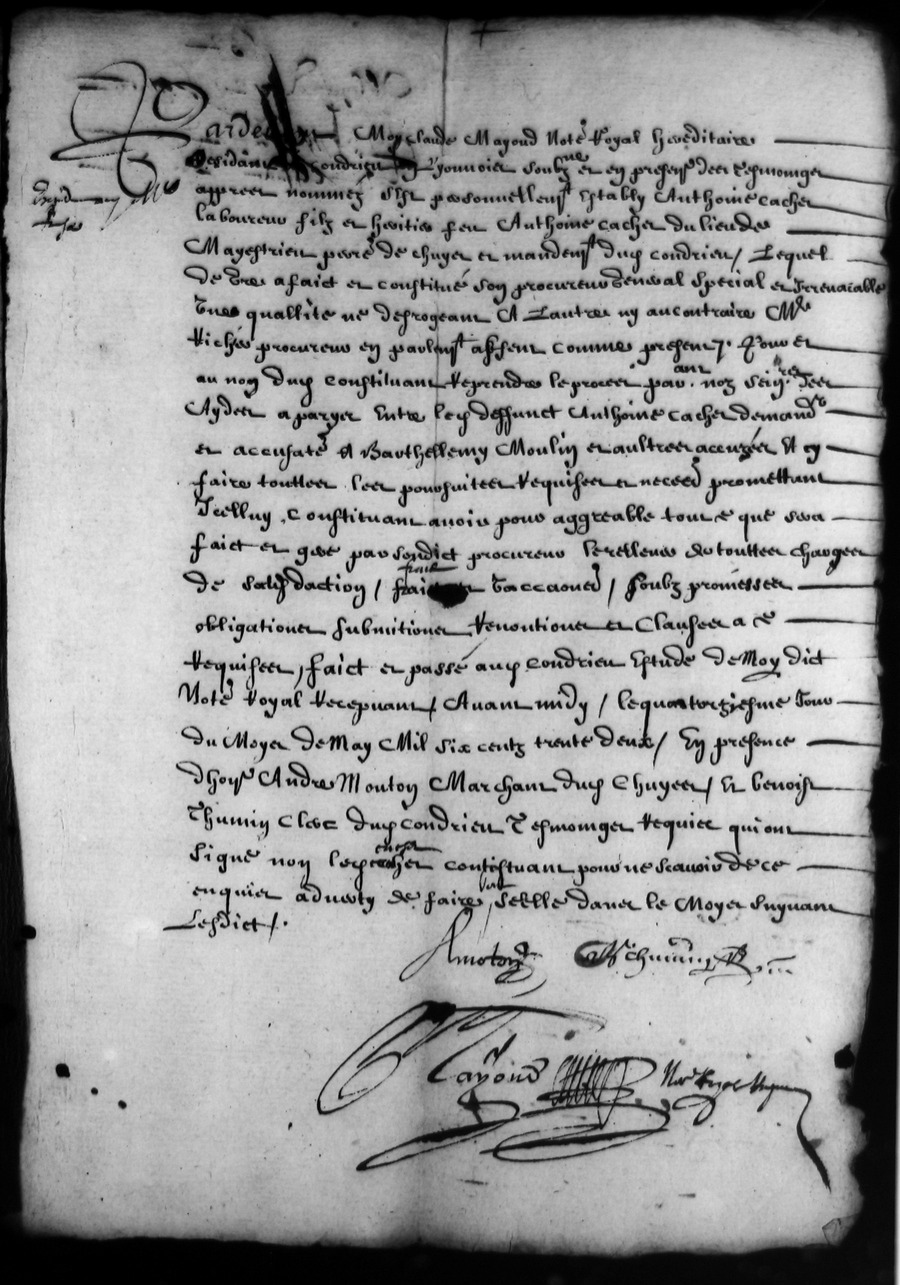 Pardevant Moy Claude Mayoud Notre Royal hereditaire
Residant Condrieu Lyonnois soubzne et en presens des tesmoings
appres nommez Sest personnellemt Estably Anthoine Cacher
laboureur filz et heritier feu Anthoine Cacher du lieu de
Mayestrieu perre de chuyer et mandemt dud Condrieu / Lequel
de Gre a faict et constitué son procureur General Special et Irrevocable
Une quallite ne desrogeant A Lautre ny au contraire Me
Riché procureur en parlemt assent comme present / Pour et
au nom dud constituant Reprendre le proces par ant noz seigrs Tees
Aydes a paryer Entre led deffunct Anthoine Cacher demandr
et accusatr Et Barthellemy Moulin et aultres accuzés Et cy
faire touttes les poursuites Requises et necesrs promettant
Icelluy Constituant avoir pour aggreable tout ce que sera
faict et gere par sondict procureur le relever de touttes charges
de satisdaction / / soubz promesses
obligationes submitiones Renontiones et Clauses a ce
Requises, faict et passé aud Condrieu Estude de Moy dict
Notre Royal Recepvant / Avant midy / le quatorziesme Jour
du Moyes de May Mil six centz trente deux / En presence
dhonn Andre Mouton Marchant dud Chuyes / Et benoist
Thumin Clerc dud Condrieu Tesmoings Requis qui ont
signé non led Cacher contistuant pour ne scavoir de ce
enquier adverty de faire seelle dans le Moyes suyvant
Lesdict /.
Amoton BThumin
Mayoud Notre Royal